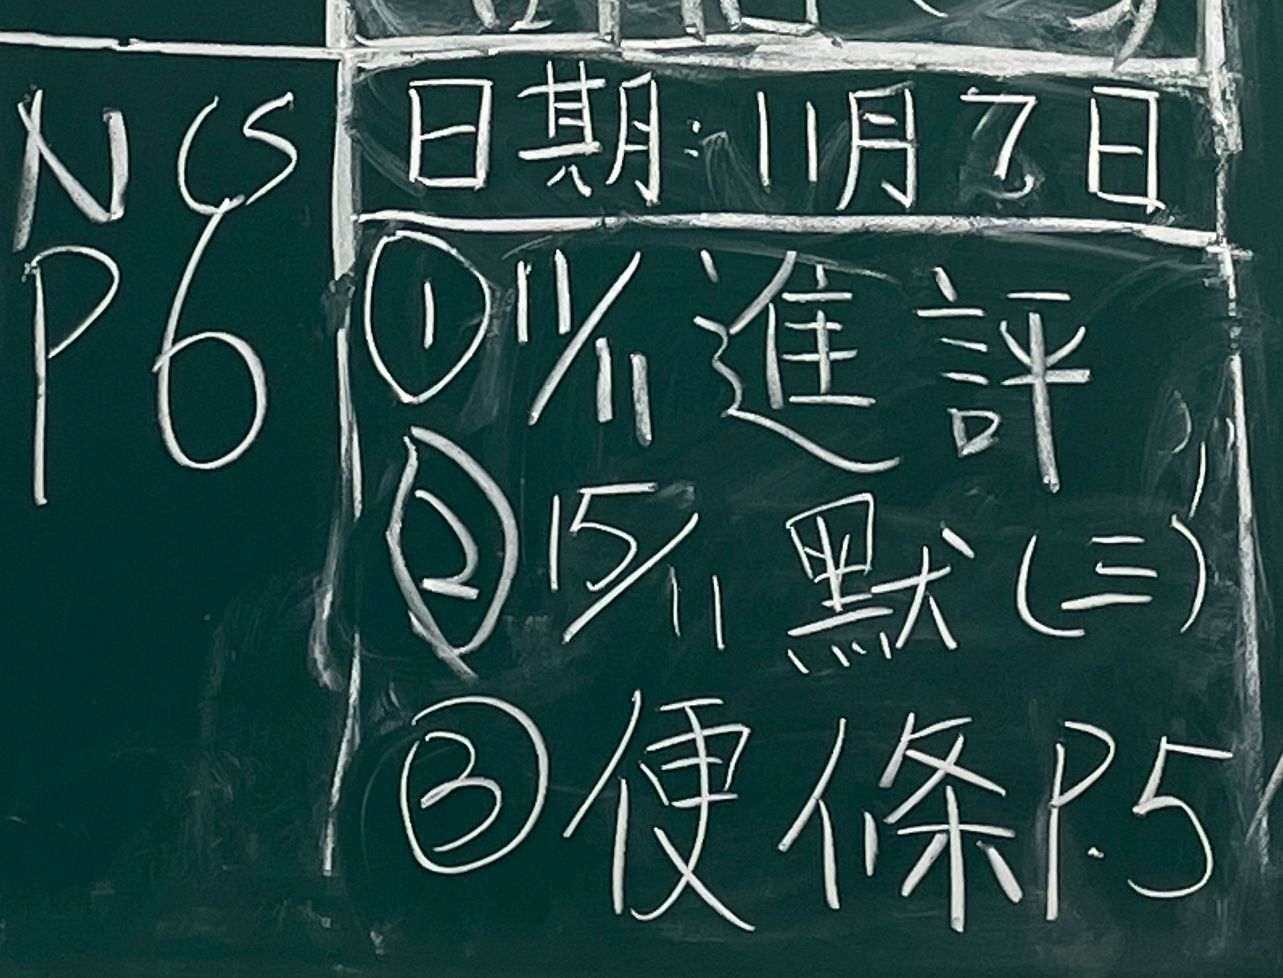 NCS
P6
日期:11月7日
①11/11進評
②15/11 默(三)
③便條P.5